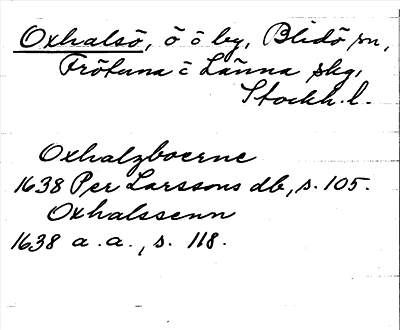 Oxhalsö, ö o by, Blidö sn,
Frötuna o Länna skg,
Stockh. l.
Oxhalzboerne
1638 Per Larssons db, s. 105.
Oxhalssenn
1638 a. a., s. 118.